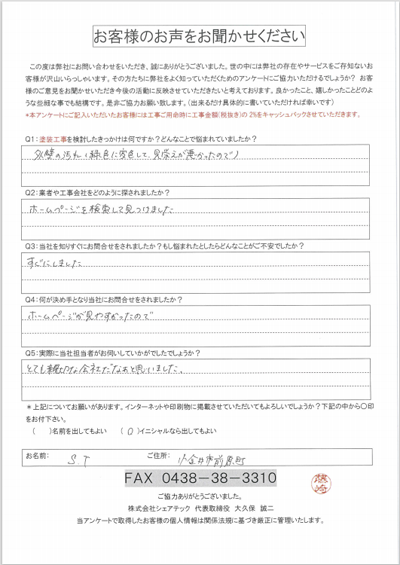 お客様のお声をお聞かせください
この度は弊社にお問い合わせをいただき、誠にありがとうございました。世の中には弊社の存在やサービスをご存知ないお
客様が沢山いらっしゃいます。その方たちに弊社をよく知っていただくためのアンケートにご協力いただけるでしょうか? お客
様のご意見をお聞かせいただき今後の活動に反映させていただきたいと考えております。良かったこと、嬉しかったことどのよ
うな些細な事でも結構です、是非ご協力お願い致します。(出来るだけ具体的に書いていただければ幸いです)
*本アンケートにご記入いただいたお客様には工事ご用命時に工事金額(税抜き)の 2%をキャッシュバックさせていただきます。
Q1:塗装工事を検討したきっかけは何ですか?どんなことで悩まれていましたか?
外壁の汚れ(緑色に変色して、見栄えが悪かったので)
Q2:業者や工事会社をどのように探されましたか?
ホームページを検索して見つけました
Q3:当社を知りすぐにお問合せをされましたか?もし悩まれたとしたらどんなことがご不安でしたか?
すぐにしました
Q4:何が決め手となり当社にお問合せをされましたか?
ホームページが見やすかったので
Q5:実際に当社担当者がお伺いしていかがでしたでしょうか?
とても親切な会社だなあと思いました。
*上記についてお願いがあります。インターネットや印刷物に掲載させていただいてもよろしいでしょうか?下記の中から〇印
をお付下さい。
( )名前を出してもよい ( O )イニシャルなら出してもよい
お名前: S.T ご住所: 小金井市前原町
FAX 0438-38-3310
ご協力ありがとうございました。
株式会社シェアテック 代表取締役 大久保 誠二
当アンケートで取得したお客様の個人情報は関係法規に基づき厳正に管理いたします。